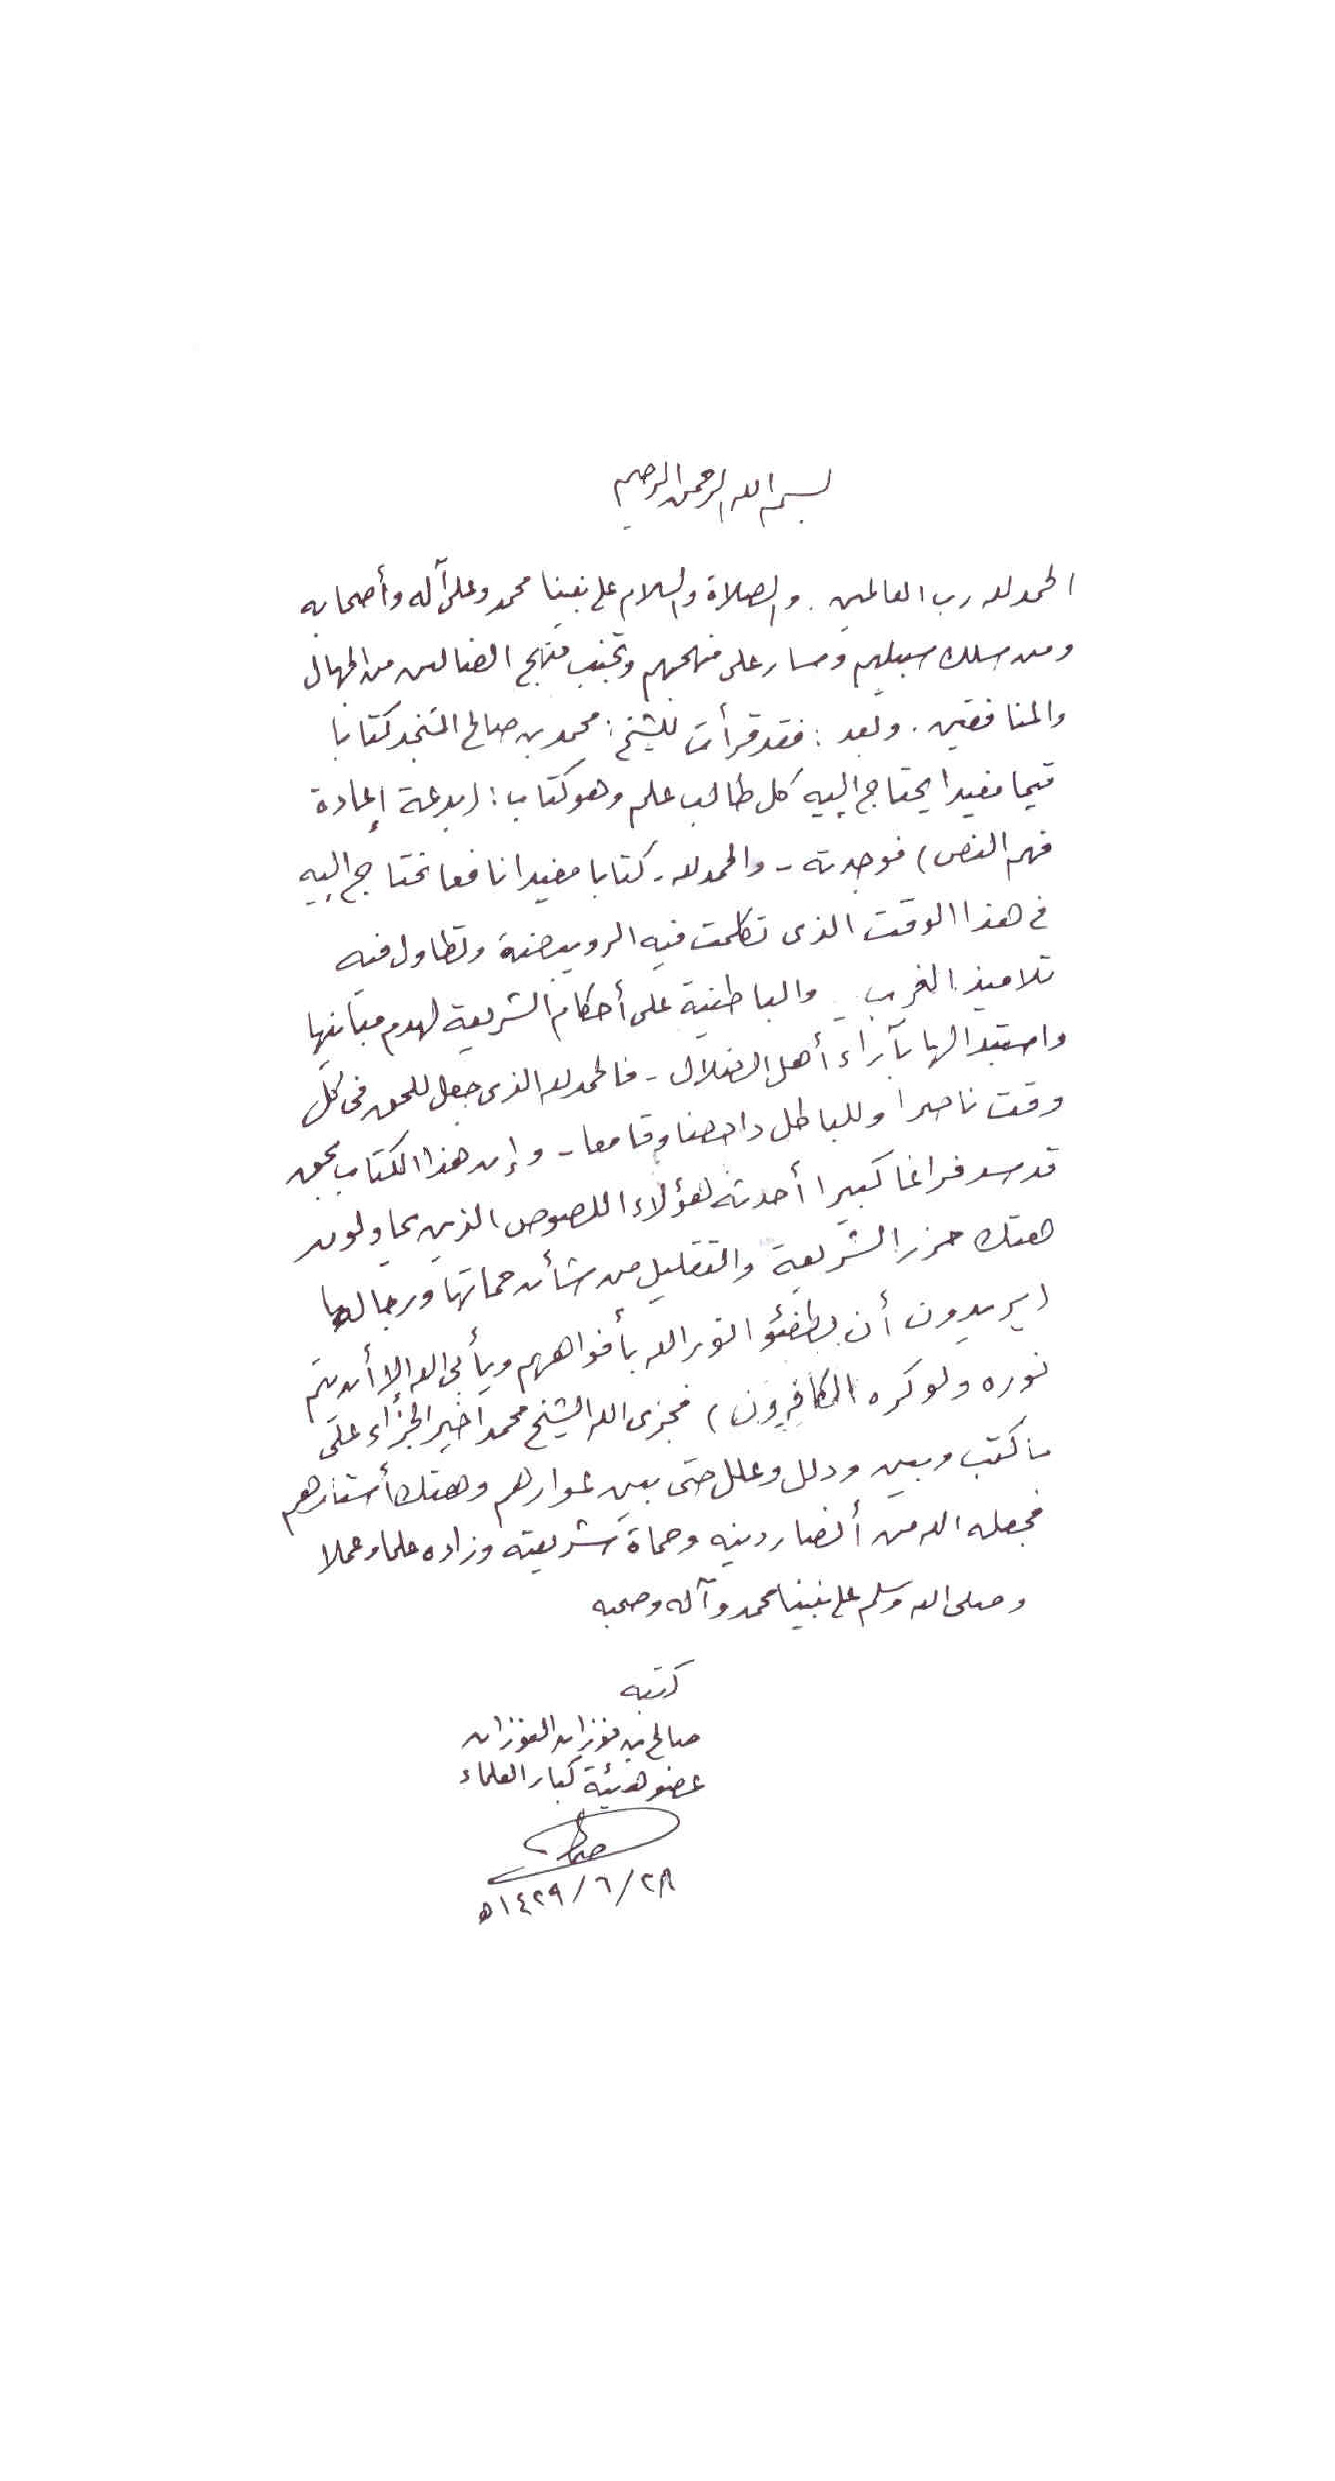 بسم الله الرحمن الرحيم
الحمد لله رب العالمين. والصلاة والسلام على نبينا محمد وعلى آله وأصحابه
ومن سلك سبيلهم وسار على منهجهم وتجنب منهج الضالين من الجهال
والمنافقين. وبعد: فقد قرأت للشيخ: محمد بن صالح المنجد كتابا
قيما مفيدا يحتاج إليه كل طالب علم وهو كتاب: (بدعة إعادة
فهم النص) فوجدته - والحمد لله - كتابا مفيدا نافعا نحتاج إليه
في هذا الوقت الذى تكلمت فيه الرويبضة وتطاول فيه
تلاميذ الغرب والباطنية على أحكام الشريعة لهدم مبانيها
واستبدالها بآراء أهل الضلال - فالحمد لله الذى جعل للحق فى كل
وقت ناصرا وللباطل داحضا وقامعا - وإن هذا الكتاب بحق
قد سد فراغا كبيرا أحدثه هؤلاء اللصوص الذين يحاولون
هتك حرز الشريعة والتقليل من شأن حماتها ورجالها
(يريدون أن يطفئوا نور الله بأفواههم ويأبى الله إلا أن يتم
نوره ولو كره الكافرون) فجزى الله الشيخ محمدا خير الجزاء على
ما كتب وبين ودلل وعلل حتى بين عوارهم وهتك أستارهم
فجعله الله من أنصار دينه وحماة شريعته وزاده علما وعملا
وصلى الله وسلم على نبينا محمد وآله وصحبه
كتبه
صالح بن فوزان الفوزان
عضو هيئة كبار العلماء
٢٨/٦/١٤٢٩ه